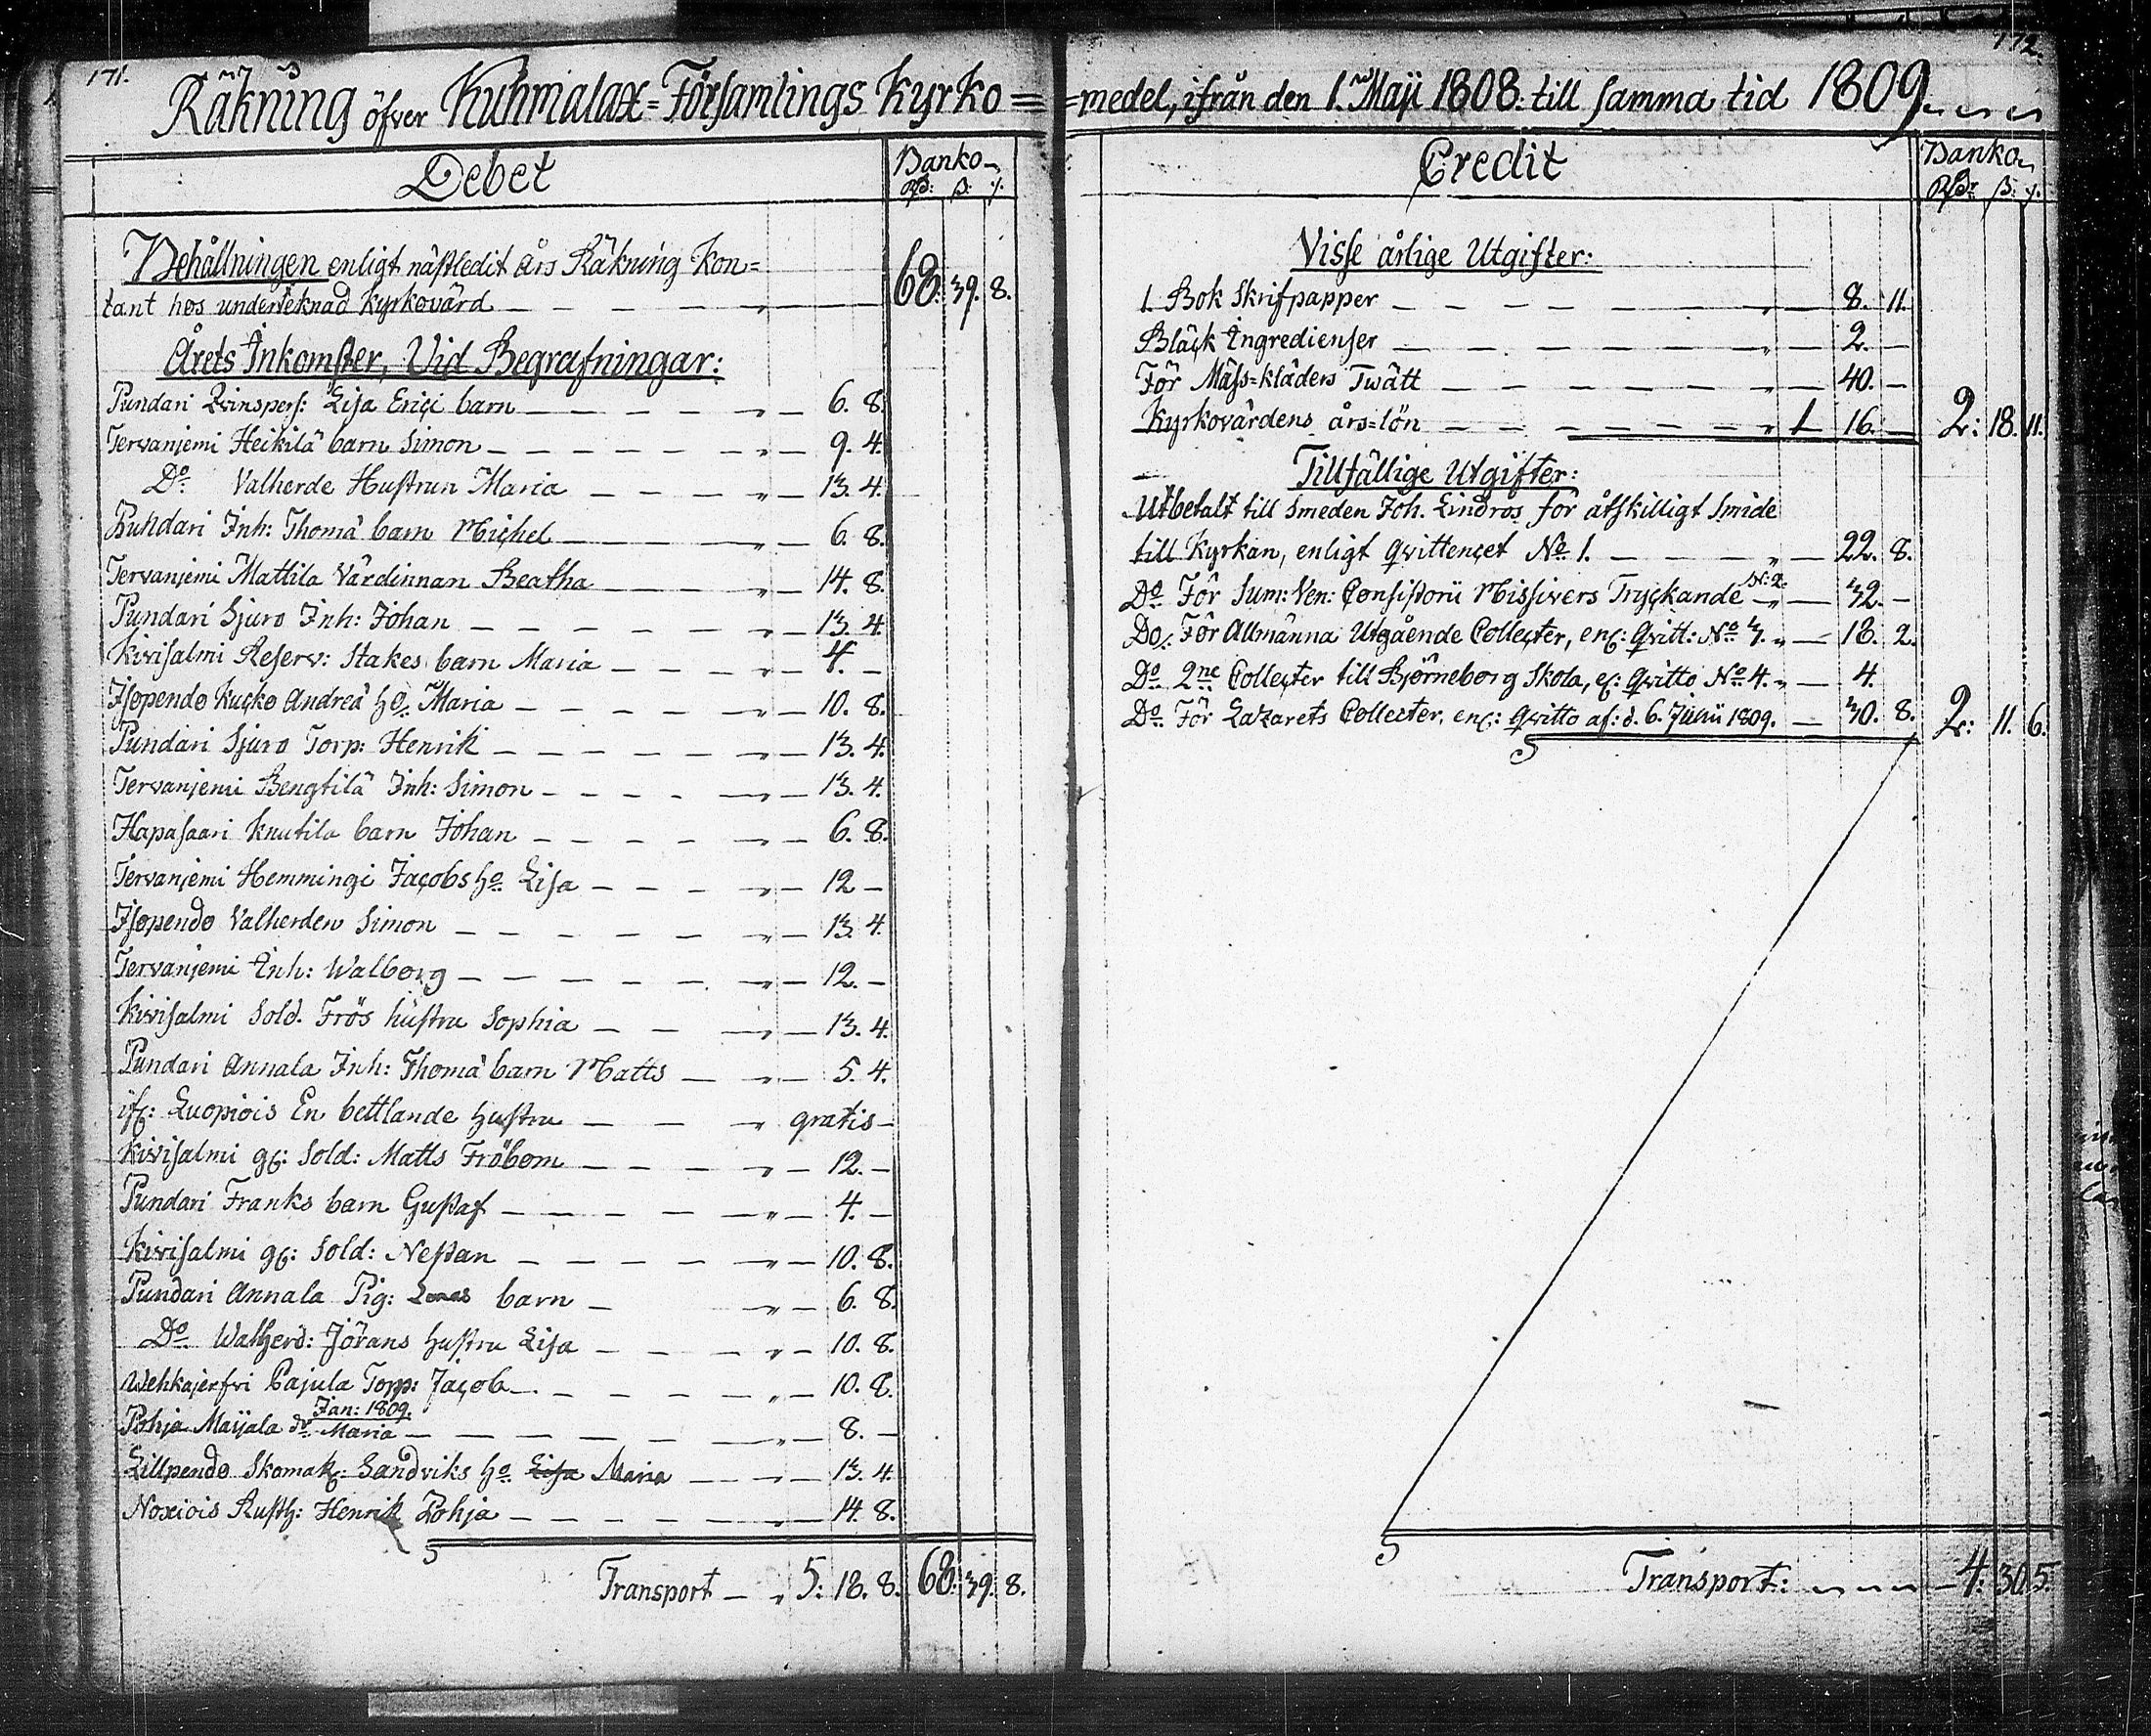 171.
Räkning öfver Kuhmalax=Församlings Kyrko=
Debet
Banko
Rß: ß: rs.
Behållningen enligt nästledit års Räkning kon=
tant hos underteknad Kyrkovärd — — — — 68. 39. 8.
Årets Inkomster, Vid Begrafningar:
Pundari Qvinspers: Lisa Erici barn — — — 6. 8.
Tervanjemi Heikilä barn Simon — — — 9. 4.
Do Valherde Hustrun Maria — — — 13. 4.
Pundari Inh: Thomæ barn Michel — — — 6. 8.
Tervanjemi Mattila Värdinnan Beatha — — 14. 8.
Pundari Sjuro Inh: Johan — — — 13. 4.
Kivisalmi Reserv: Stakes barn Maria — — — 4. —
Isopendo Kucko Andreæ ho Maria — — — 10. 8.
Pundari Sjuro Torp: Henrik — — — 13. 4.
Tervanjemi Bengtilä Inh: Simon — — — 13. 4.
Hapasaari Knutila barn Johan — — — 6. 8.
Tervanjemi Hemmingi Jacobs ho Lisa — — — 12 —
Isopendo Valherden Simon — — — 13. 4.
Tervanjemi Inh: Walborg — — — 12. —
Kivisalmi Sold. Frös hustru Sophia — — — 13. 4.
Pundari Annala Inh: Thomæ barn Matts — — 5. 4.
ifr: Luopiois En bettlande hustru — — — gratis —
Kivisalmi gl: Sold: Matts Fröbom — — — 12. —
Pundari Franks barn Gustaf — — — 4. —
Kivisalmi gl: Sold: Nestan — — — 10. 8.
Pundari Annala Pig: barn — — 6. 8.
Do Walherd: Jörans hustru Lisa — — — 10. 8.
Wehkajerfvi Pajula Torp: Jacob — — — 10. 8.
Jan: 1809.
Pohja Maijala dr. Maria — — — 8. —
Lillpendo Skomak: Sandviks ho Lisa Maria — — 13. 4.
Noxiois Rusth: Henrik Pohja — — — 14. 8.
Transport — 5: 18. 8. 68: 39. 8.
172.
=medel, ifrån den 1. Maji 1808. till samma tid 1809.
Credit
Banko
Rß: ß: rs.
Visse årlige Utgifter:
1. Bok Skrifpapper — — — 8. 11.
Bläck Ingredienser — — — 2. —
För Mäss=kläders Twätt — — — 40. —
Kyrkovärdens års=lön — — — 1 16. — 2: 18. 11.
Tillfällige Utgifter:
Utbetalt till Smeden Joh. Lindros för åtskilligt Smide
till Kyrkan, enligt Qvittencet No 1. — — — 22. 8.
Do För Sum: Ven: Consistorii Missivers Tryckande N: 2. — 32. —
Do För Allmänna Utgående Collecter, enl: Qvitt: No 3. — 18. 2.
Do 2ne Collecter till Björneborg Skola, el: Qvitto No 4. — 4.
Do För Lazarets Collecter, enl: Qvitto af: d. 6. Junii 1809. — 30. 8. 2: 11. 6.
Transport: — 4: 30. 5.